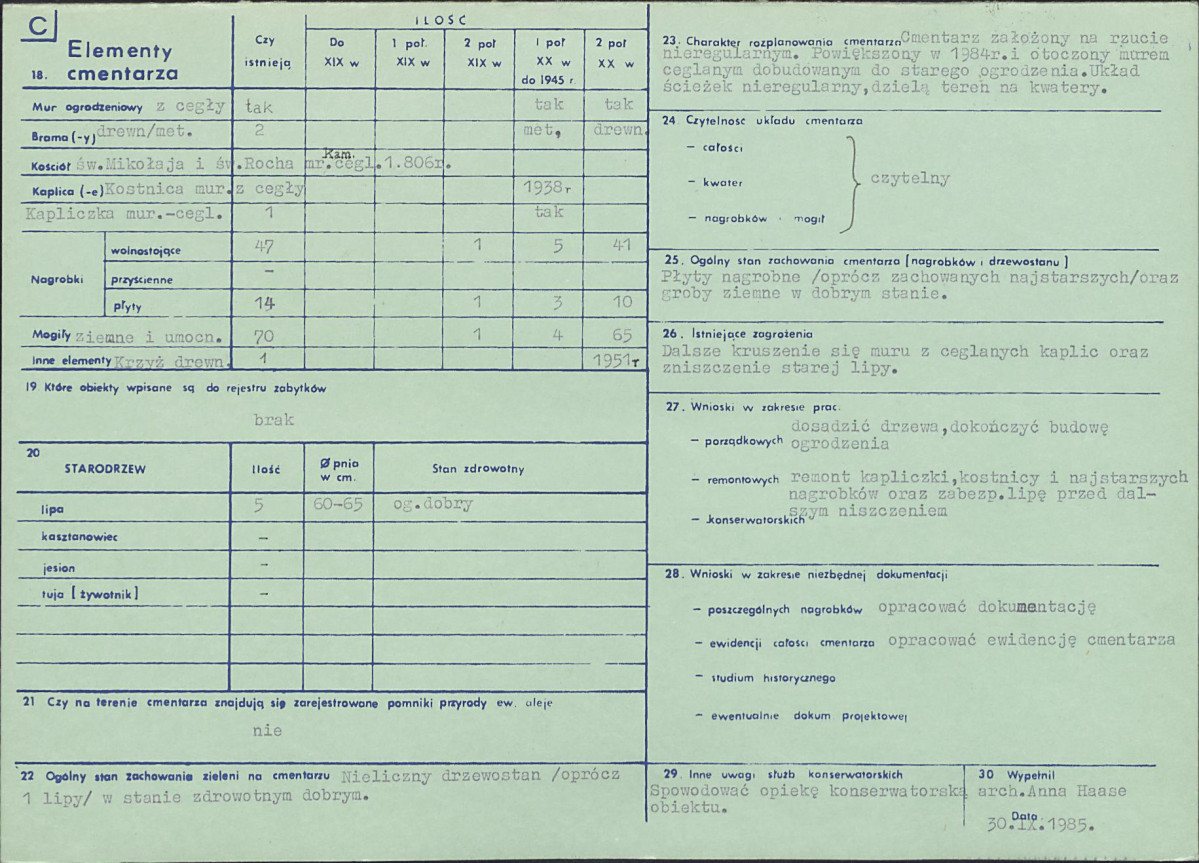 C
18. Elementy cmentarza
Czy istnieją
ILOŚĆ
Do XIX w
1 poł. XIX w
2 poł XIX w
I poł XX w do 1945 r.
2 poł XX w
Mur ogrodzeniowy z cegły tak tak tak
Brama (-y) drewn/met. 2 met, drewn.
Kościół św.Mikołaja i św.Rocha mr.cegl.1.806r.
Kam.
Kaplica (-e) Kostnica mur.z cegły 1938r
Kapliczka mur.-cegl. 1 tak
Nagrobki
wolnostojące 47 1 5 41
przyścienne –
płyty 14 1 3 10
Mogiły ziemne i umocn. 70 1 4 65
Inne elementy Krzyż drewn. 1 1951r
19 Które obiekty wpisane są do rejestru zabytków
brak
20
STARODRZEW Ilość Ø pnia w cm. Stan zdrowotny
lipa 5 60-65 og.dobry
kasztanowiec –
jesion –
tuja [żywotnik] –
21 Czy na terenie cmentarza znajdują się zarejestrowane pomniki przyrody ew. aleje
nie
22 Ogólny stan zachowania zieleni na cmentarzu Nieliczny drzewostan /oprócz
1 lipy/ w stanie zdrowotnym dobrym.
23. Charakter rozplanowania cmentarza Cmentarz założony na rzucie
nieregularnym. Powiększony w 1984r.i otoczony murem
ceglanym dobudowanym do starego ogrodzenia.Układ
ścieżek nieregularny,dzielą tereń na kwatery.
24 Czytelność układu cmentarza
– całości
– kwater
czytelny
– nagrobków · mogił
25. Ogólny stan zachowania cmentarza [nagrobków i drzewostanu]
Płyty nagrobne /oprócz zachowanych najstarszych/oraz
groby ziemne w dobrym stanie.
26. Istniejące zagrożenia
Dalsze kruszenie się muru z ceglanych kaplic oraz
zniszczenie starej lipy.
27. Wnioski w zakresie prac.
dosadzić drzewa,dokończyć budowę
– porządkowych ogrodzenia
– remontowych remont kapliczki,kostnicy i najstarszych
nagrobków oraz zabezp.lipę przed dal-
szym niszczeniem
– konserwatorskich
28. Wnioski w zakresie niezbędnej dokumentacji
– poszczególnych nagrobków opracować dokumentację
– ewidencji całości cmentarza opracować ewidencję cmentarza
– studium historycznego
– ewentualnie dokum projektowej
29. Inne uwagi służb konserwatorskich
Spowodować opiekę konserwatorską
obiektu.
30 Wypełnił
arch.Anna Haase
Data
30.IX.1985.